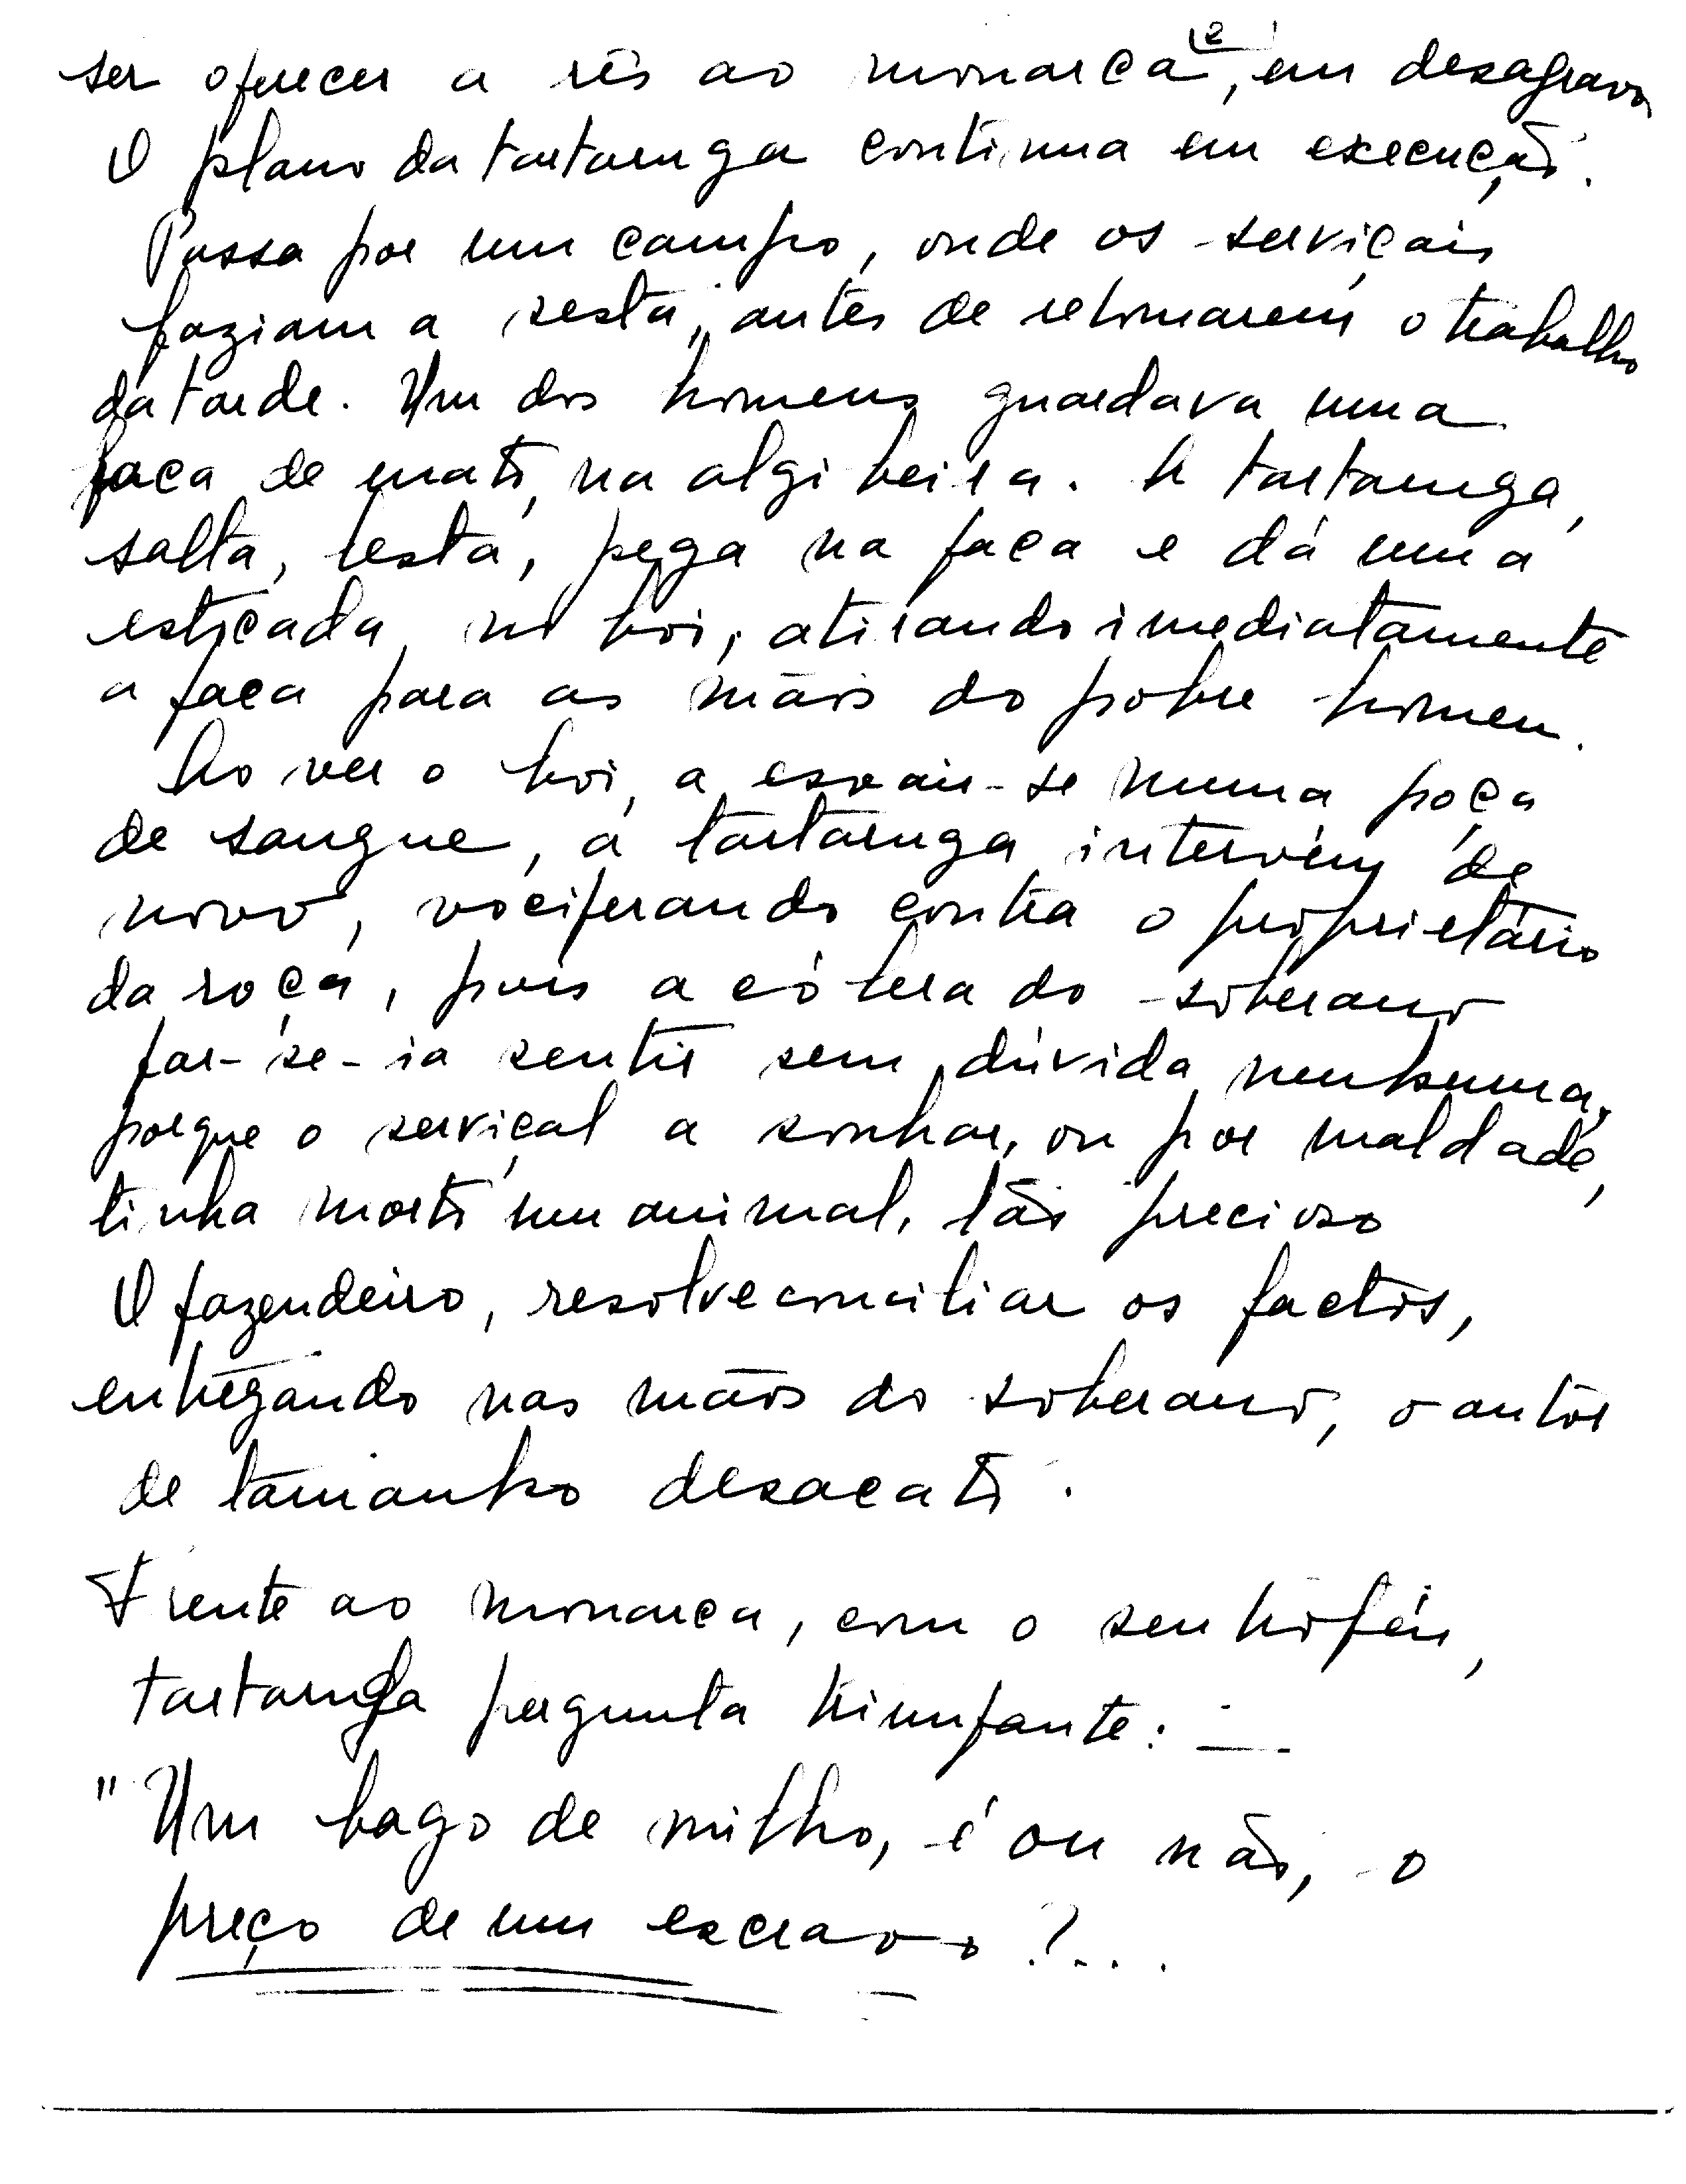 12
ser oferecer a rês ao monarca, em desagravo
O plano da tartaruga continua em execução.
Passa por um campo, onde os serviçais
faziam a sesta, antes de retomarem o trabalho
da tarde. Um dos homens guardava uma
faca de mato, na algibeira. A tartaruga,
salta, lesta, pega na faca e dá uma
esticada no boi, atirando imediatamente
a faca para as mãos do pobre homem.
Ao ver o boi, a esvair-se numa poça
de sangue, a tartaruga intervém de
novo, vociferando contra o proprietário
da roça, pois a cólera do soberano
far-se-ia sentir sem dúvida nenhuma,
porque o serviçal a sonhar, ou por maldade,
tinha morto um animal, tão precioso
O fazendeiro, resolve conciliar os factos,
entregando nas mãos do soberano, o autor
de tamanho desacato.
Frente ao monarca, com o seu troféu,
tartaruga pergunta triunfante: —
"Um bago de milho, é ou não, o
preço de um escravo?...